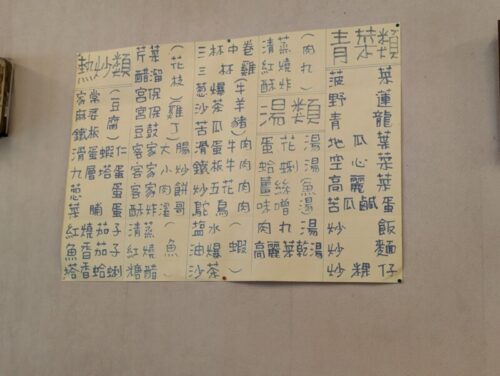 青菜類
菠菜
野蓮
青龍菜
地瓜葉
空心菜
高麗菜
苦瓜鹹蛋
炒飯
炒麵
炒粿仔
(肉丸)
清蒸
紅燒
酥炸
湯類
蛋花湯
蛤蜊湯
薑絲(魚)湯
味噌湯
肉丸湯
高麗菜乾湯
三杯中卷
三杯雞
蔥爆
沙茶
苦瓜
(牛羊豬)肉
滑蛋牛肉
鐵板牛肉
炒五花肉
鴕鳥肉
塩水
油爆
沙茶
(蝦)
熱炒類
芹菜
醋溜
(花枝)
宮保
宮保
豆鼓
(雞丁)
客家大腸
客家小炒
客家肉餅
酥炸溪哥
清蒸
紅燒
糖醋
(魚)
家常
麻婆
鐵板
(豆腐)
滑蛋蝦仁
九層塔蛋
蔥蛋
菜脯蛋
紅燒茄子
魚香茄子
塔香蛤蜊